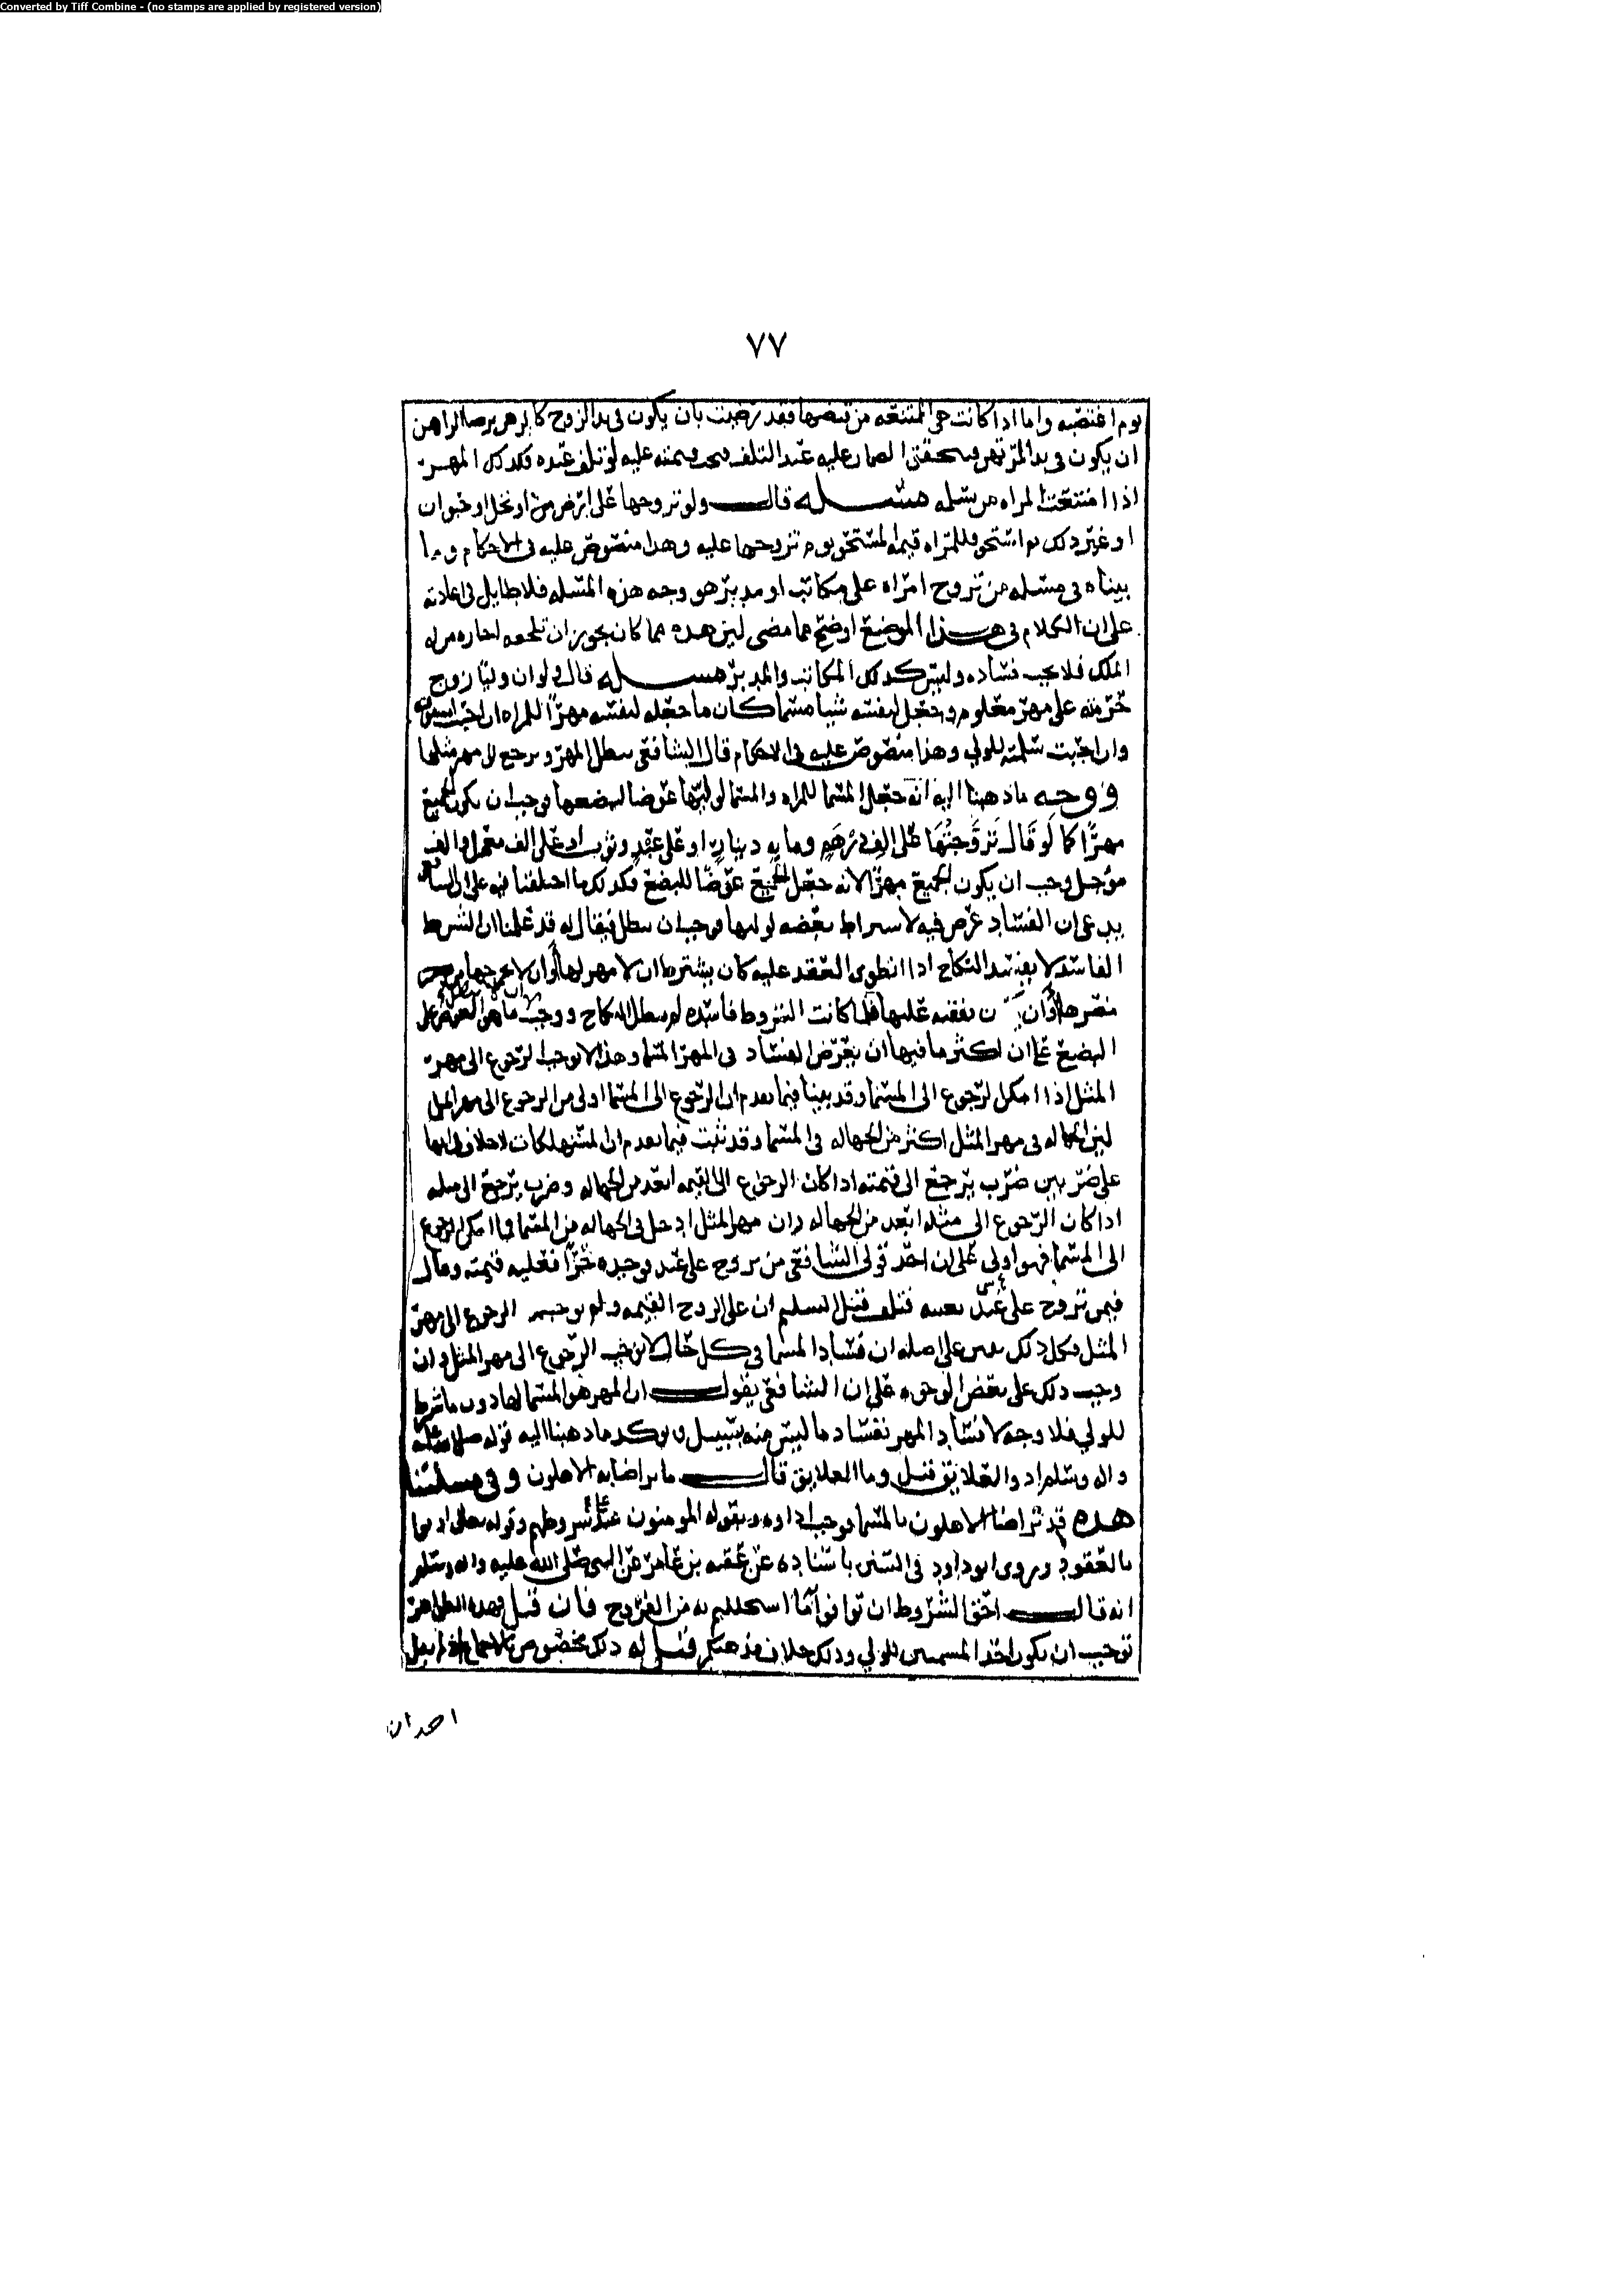 Converted by Tiff Combine - (no stamps are applied by registered version)
٧٧
يوم اغتصبه واما اذا كانت هي الممتنعه من قبضها فقد رضيت بان يكون في يد الزوج كالرهن يرضا الراهن
ان يكون في يد المرتهن عليه عند التلف قيمته عليه لو تلف عنده فكذلك المهر
اذا امتنعت المراه من مسله قال ولو تزوجها على ارض من او نخل او حيوان
او غير ذلك ثم استحق فللمراه قيمه المستحق يوم تزوجها عليه وهذا منصوص عليه في الاحكام وما
بيناه في مسله من تزوج امراه على مكاتب او مدبر هو وجه هذه المسله فلا طايل في اعادته
على ان الكلام في هذا الموضع اوضح مما مضى لين هذه مما كان يجوز ان تلحقه اجازه من له
الملك فلا يجب فساده وليس كذلك المكاتب والمدبر مسله قال ولو ان وليا زوج
حرمته على مهر معلوم وجعل لنفسه شيا مسما كان ما جعله لنفسه مهرا للمراه ان احبت
وان احبت سلمته للولي وهذا منصوص عليه في الاحكام قال الشافعي يبطل المهر ويرجع الى مهر مثلها
ووجه ما ذهبنا اليه انه جعل المسما للمراه والمسما لوليها عوضا لبضعها فوجب ان يكون الجميع
مهرا كما لو قال تزوجتها على الف درهم ومايه دينار او على عبد وثوب او على الف معجل والف
موجل وجب ان يكون الجميع مهرا لانه جعل الجميع عوضا للبضع فكذلك ما اختلفنا فيه على ان الشافعي
ان الفساد عرض فيه لاشتراط بعضه لوليها فوجب ان يبطل فيقال له قد علمنا ان الشرط
الفاسد لا يفسد النكاح اذا انطوى العقد عليه كان يشترط ان لا مهر لها او ان لا يخرجها من
مصرها او ان نفقته عليها فلما كانت الشروط فاسده لم يبطل النكاح ووجب ما هو العوض على
البضع على ان اكثر ما فيها ان يعرض الفساد في المهر المسما وهذا لا يوجب الرجوع الى مهر
المثل اذا امكن الرجوع الى المسما وقد بينا فيما تقدم ان الرجوع الى المسما اولى من الرجوع الى مهر المثل
لين الجهاله في مهر المثل اكثر من الجهاله في المسما وقد ثبت فيما تقدم ان المستهلكات لا خلاف انها
على ضربين ضرب يرجع الى قيمته اذا كان الرجوع الى القيمه ابعد من الجهاله وضرب يرجع الى مثله
اذا كان الرجوع الى مثله ابعد من الجهاله وان مهر المثل ادخل في الجهاله من المسما فما امكن الرجوع
الى المسما فهو اولى على ان احد قولي الشافعي من تزوج على عبد فوجده حرا فعليه قيمته وقال
فيمن تزوج على عبد بعينه فتلف قبل التسليم ان على الزوج القيمه ولم يوجب الرجوع الى مهر
المثل فكل ذلك على اصله ان فساد المسما في كل حال لا يوجب الرجوع الى مهر المثل وان
وجب ذلك على بعض الوجوه على ان الشافعي يقول ان المهر هو المسما لها دون ما شرط
للولي فلا وجه لافساد المهر بفساد ما ليس منه بسبيل ويوكد ما ذهبنا اليه قوله صلى الله عليه
واله وسلم ادوا العلايق قيل وما العلايق قال ما تراضا به الاهلون وفي مسلتنا
هذه قد تراضا الاهلون بالمسما فوجب اداوه وبقوله المومنون عند شروطهم وقوله تعالى اوفوا
بالعقود وروى ابو داود في السنن باسناده عن عقبه بن عامر عن النبي صلى الله عليه واله وسلم
انه قال احق الشروط ان توفوا ما استحللتم به من الفروج فان قيل فهذه الظواهر
توجب ان يكون احد المسميين للولي وذلك خلاف مذهبكم قيل له ذلك مخصوص بالاجماع اذ لم يقل
احد ان